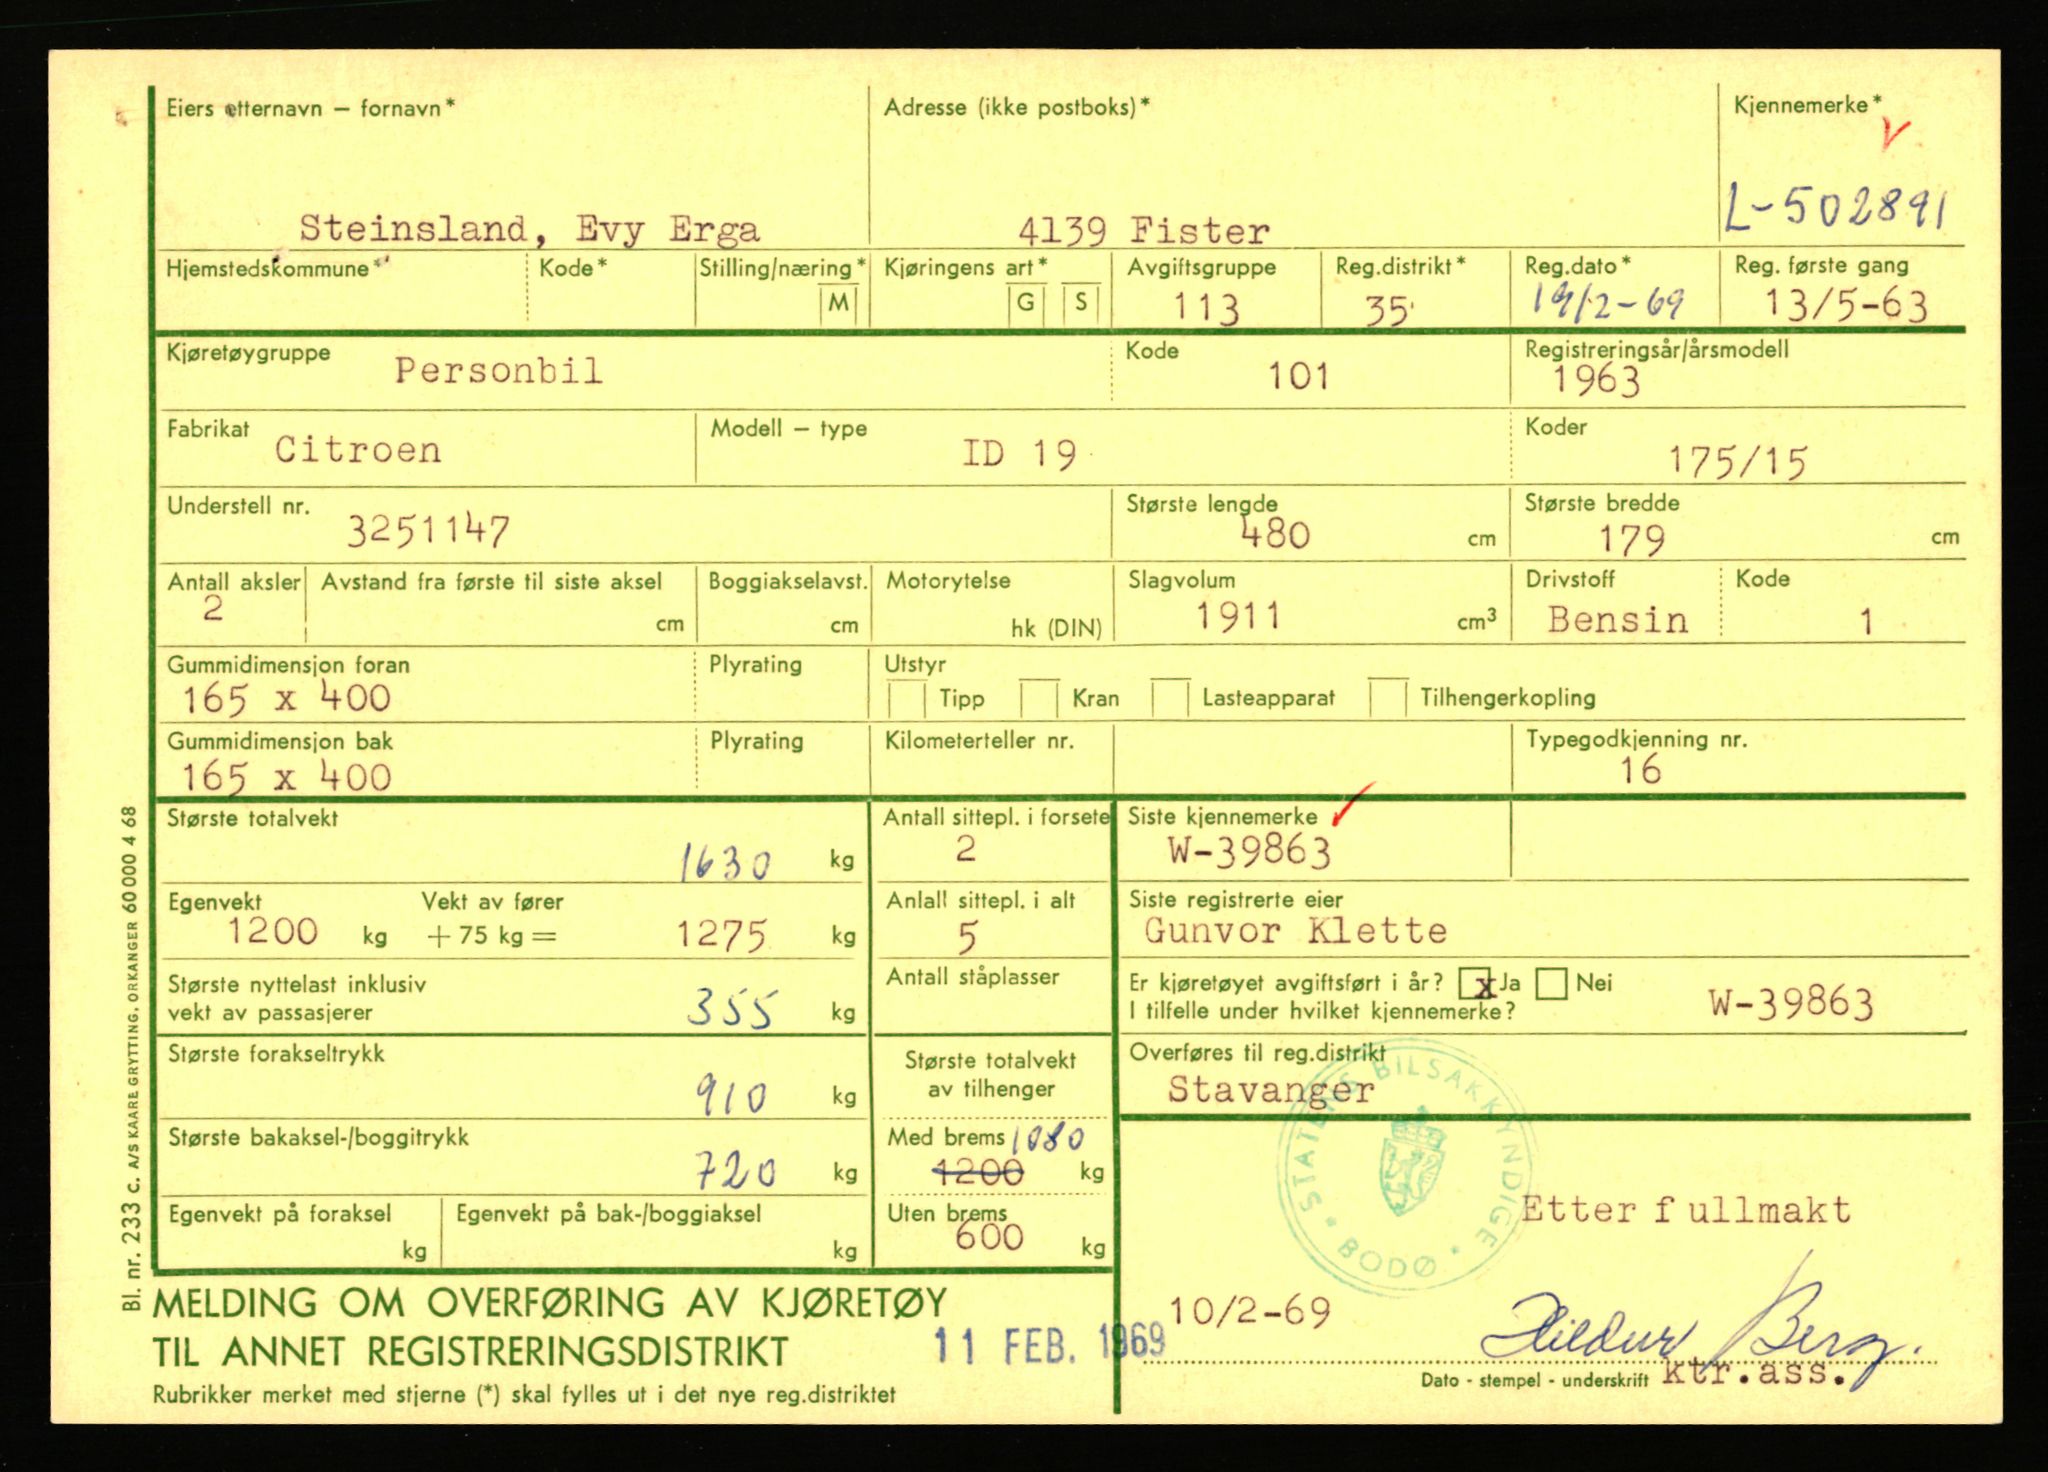 Eiers etternavn – fornavn* Adresse (ikke postboks)* Kjennemerke*
V
L-502891
Steinsland, Evy Erga 4139 Fister
Hjemstedskommune* Kode* Stilling/næring* Kjøringens art* Avgiftsgruppe Reg.distrikt* Reg.dato* Reg. første gang
M G S 113 35 19/2-69 13/5-63
Kjøretøygruppe Kode Registreringsår/årsmodell
Personbil 101 1963
Fabrikat Modell – type Koder
Citroen ID 19 175/15
Understell nr. Største lengde Største bredde
3251147 480 cm 179 cm
Antall aksler Avstand fra første til siste aksel Boggiakselavst. Motorytelse Slagvolum Drivstoff Kode
2 cm cm hk (DIN) 1911 cm³ Bensin 1
Gummidimensjon foran Plyrating Utstyr
165 x 400 Tipp Kran Lasteapparat Tilhengerkopling
Gummidimensjon bak Plyrating Kilometerteller nr. Typegodkjenning nr.
165 x 400 16
Største totalvekt Antall sittepl. i forsete Siste kjennemerke
1630 kg 2 W-39863
Egenvekt Vekt av fører Anlall sittepl. i alt Siste registrerte eier
1200 kg + 75 kg = 1275 kg 5 Gunvor Klette
Største nyttelast inklusiv Antall ståplasser Er kjøretøyet avgiftsført i år? x Ja Nei
vekt av passasjerer 355 kg I tilfelle under hvilket kjennemerke? W-39863
Største forakseltrykk Største totalvekt Overføres til reg.distrikt
910 kg av tilhenger Stavanger
Største bakaksel-/boggitrykk Med brems 1080
720 kg 1200 kg
STATENS BILSAKKYNDIGE * BODØ *
Egenvekt på foraksel Egenvekt på bak-/boggiaksel Uten brems Etter fullmakt
kg kg 600 kg
MELDING OM OVERFØRING AV KJØRETØY 10/2-69
TIL ANNET REGISTRERINGSDISTRIKT 11 FEB. 1969 Hildur Berg.
Dato - stempel - underskrift ktr.ass.
Rubrikker merket med stjerne (*) skal fylles ut i det nye reg.distriktet
Bl. nr. 233 c. A/S KAARE GRYTTING, ORKANGER 60 000 4 68